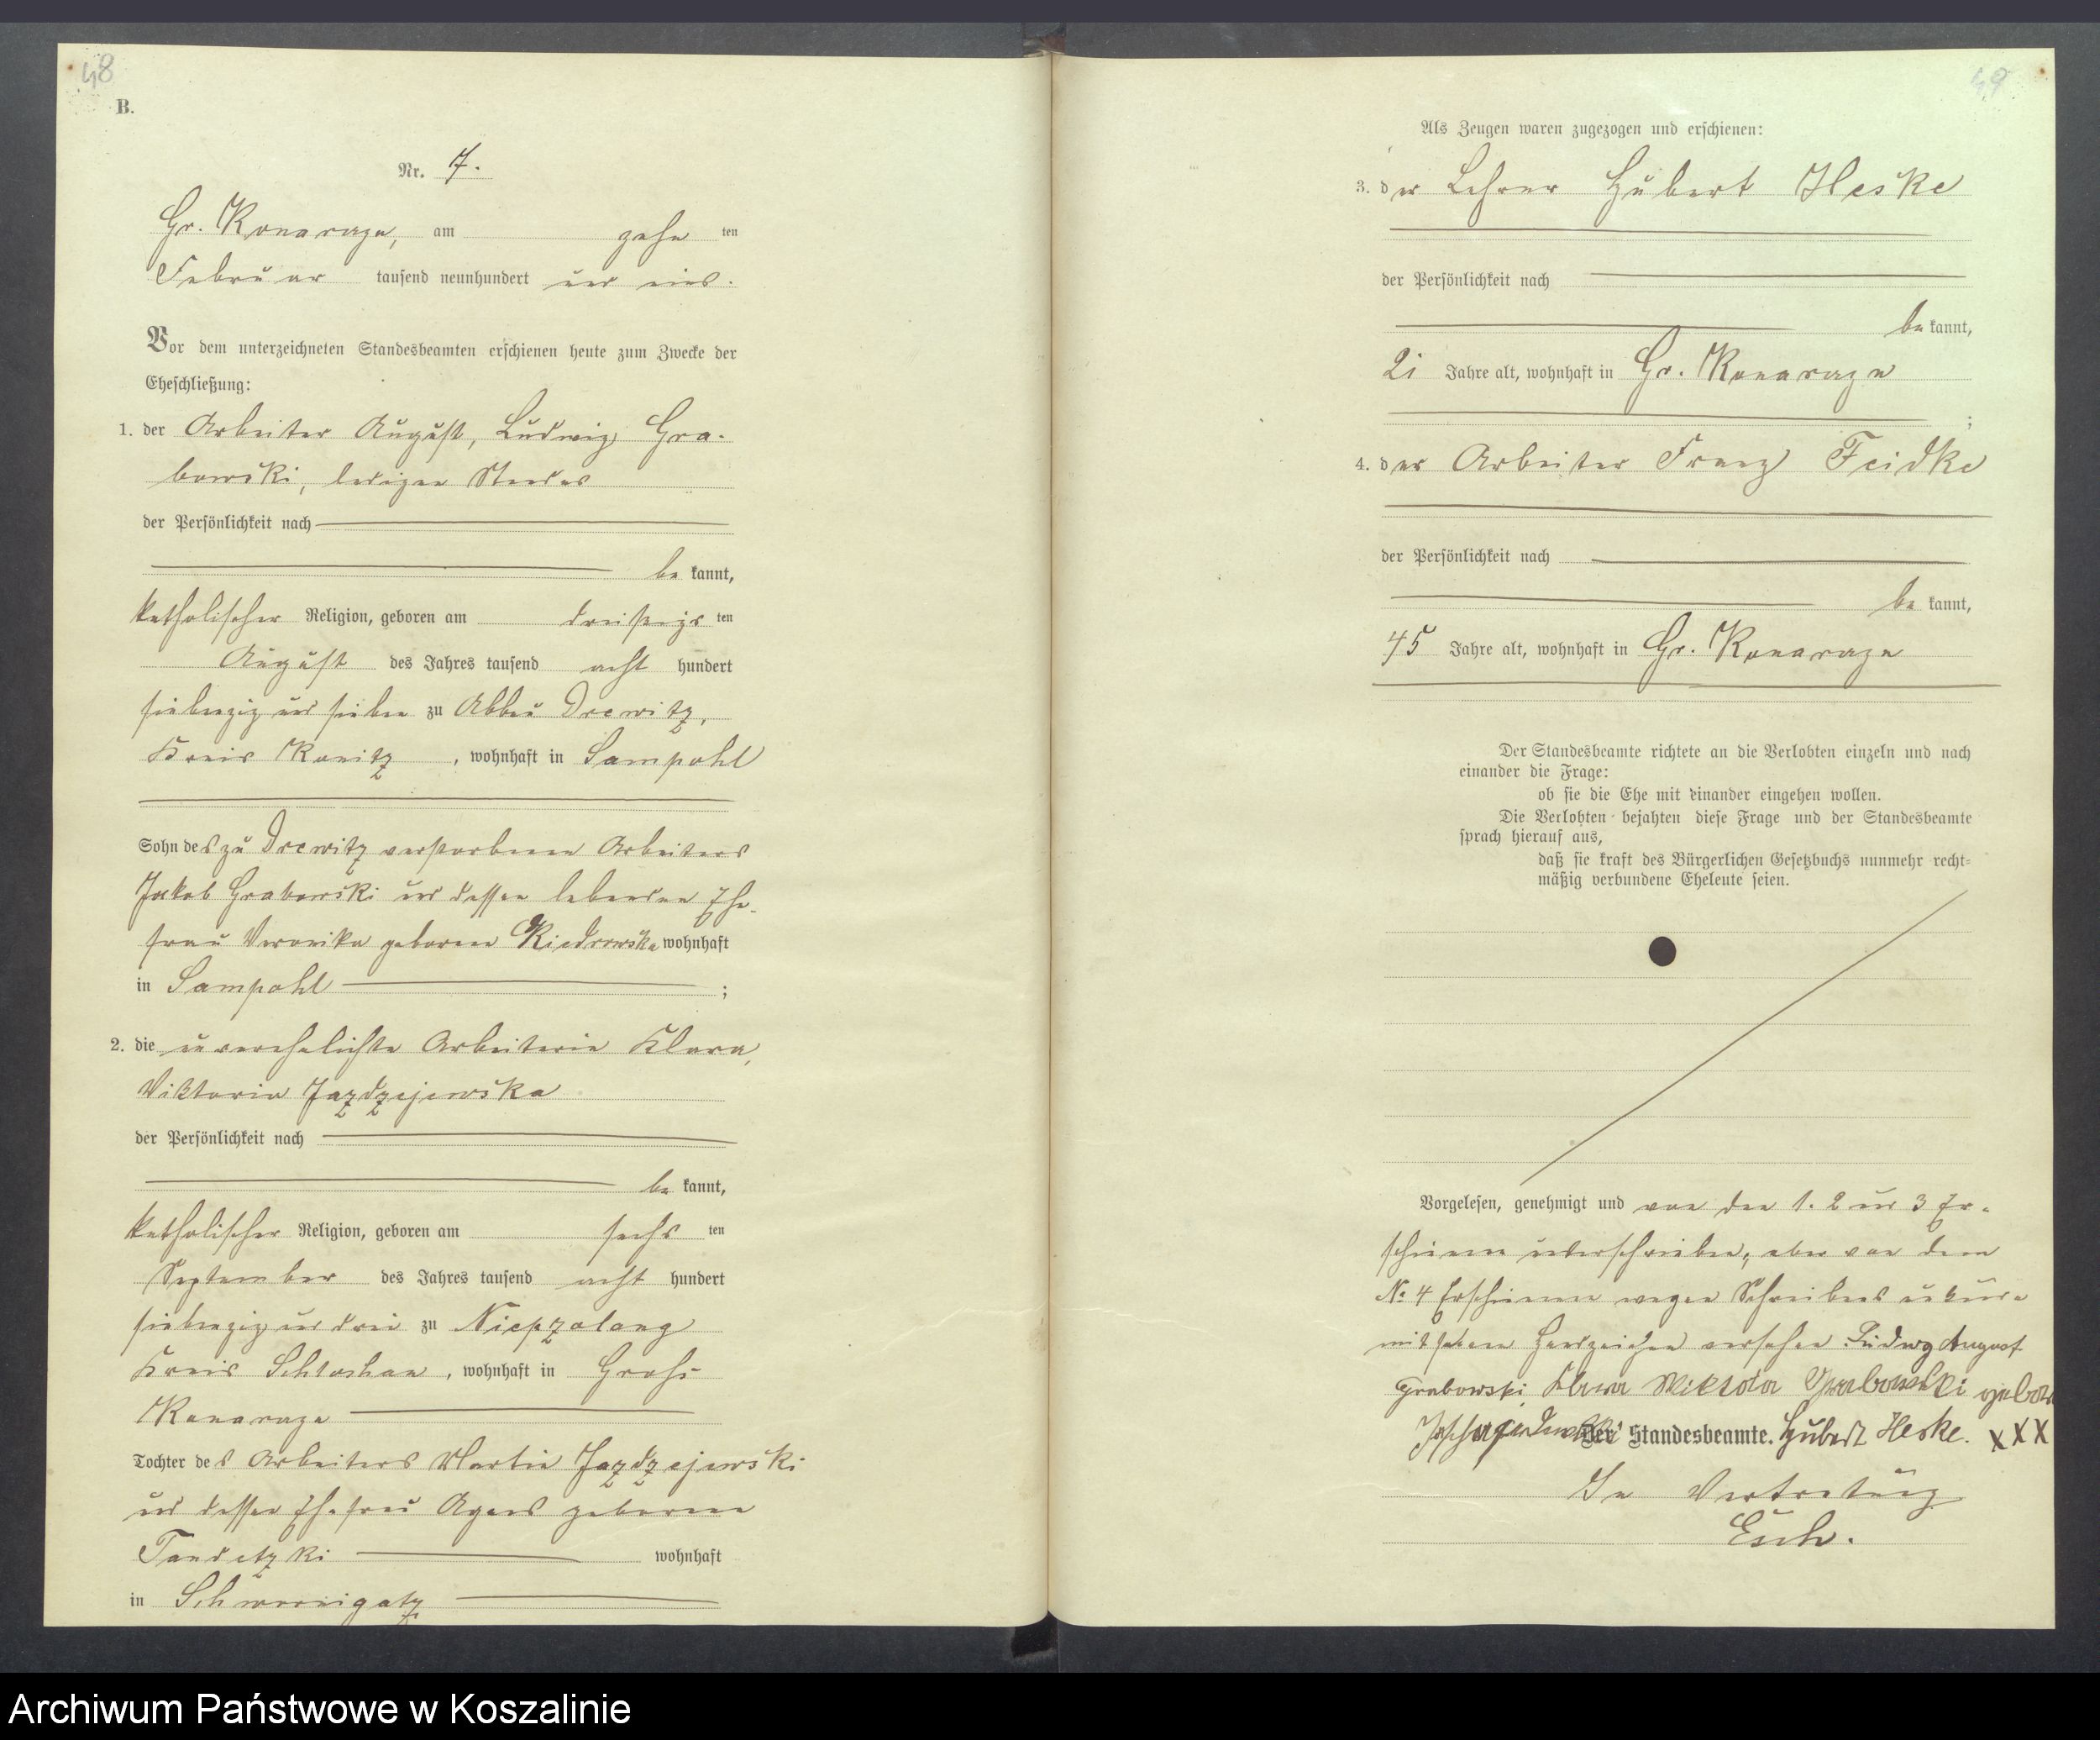 48
B.
Nr. 7.
Gr. Konarczyn, am zehn ten
Februar tausend neunhundert und eins.
Vor dem unterzeichneten Standesbeamten erschienen heute zum Zwecke der
Eheschließung:
1. der Arbeiter August, Ludwig Gra-
bowski, ledigen Standes
der Persönlichkeit nach
be kannt,
katholischer Religion, geboren am dreißigs ten
August des Jahres tausend acht hundert
siebenzig und sieben zu Abbau Drewitz,
Kreis Konitz, wohnhaft in Sampohl
Sohn des zu Drewitz verstorbenen Arbeiters
Jakob Grabowski und dessen lebenden Ehe-
frau Veronika geborene wohnhaft
in Sampohl ;
2. die unverehelichte Arbeiterin Klara,
Viktoria Jazdzejewska
der Persönlichkeit nach
be kannt,
katholischer Religion, geboren am sechs ten
September des Jahres tausend acht hundert
siebenzig und drei zu
Kreis Schlochau, wohnhaft in Groß-
Konarczyn
Tochter des Arbeiters Martin Jazdzejewski
und dessen Ehefrau Agnes geborene
Tandetzki wohnhaft
in Schwornigatz
49
Als Zeugen waren zugezogen und erschienen:
3. der Lehrer Hubert Heske
der Persönlichkeit nach
be kannt,
21 Jahre alt, wohnhaft in Gr. Konarczyn
;
4. der Arbeiter Franz Feidke
der Persönlichkeit nach
be kannt,
45 Jahre alt, wohnhaft in Gr. Konarczyn
Der Standesbeamte richtete an die Verlobten einzeln und nach
einander die Frage:
ob sie die Ehe mit einander eingehen wollen.
Die Verlobten bejahten diese Frage und der Standesbeamte
sprach hierauf aus,
daß sie kraft des Bürgerlichen Gesetzbuchs nunmehr recht-
mäßig verbundene Eheleute seien.
Vorgelesen, genehmigt und von den 1. 2 und 3 Er-
schienenen unterschrieben, aber von dem
No 4 Erschienenen wegen Schreibens unkunde
mit seinem Handzeichen versehen. Ludwg August
Grabowski, Klara Wiktoia Grabowski gebor
Der Standesbeamte. Hubert Heske. XXX
In Vertretung
Esch.
Archiwum Państwowe w Koszalinie